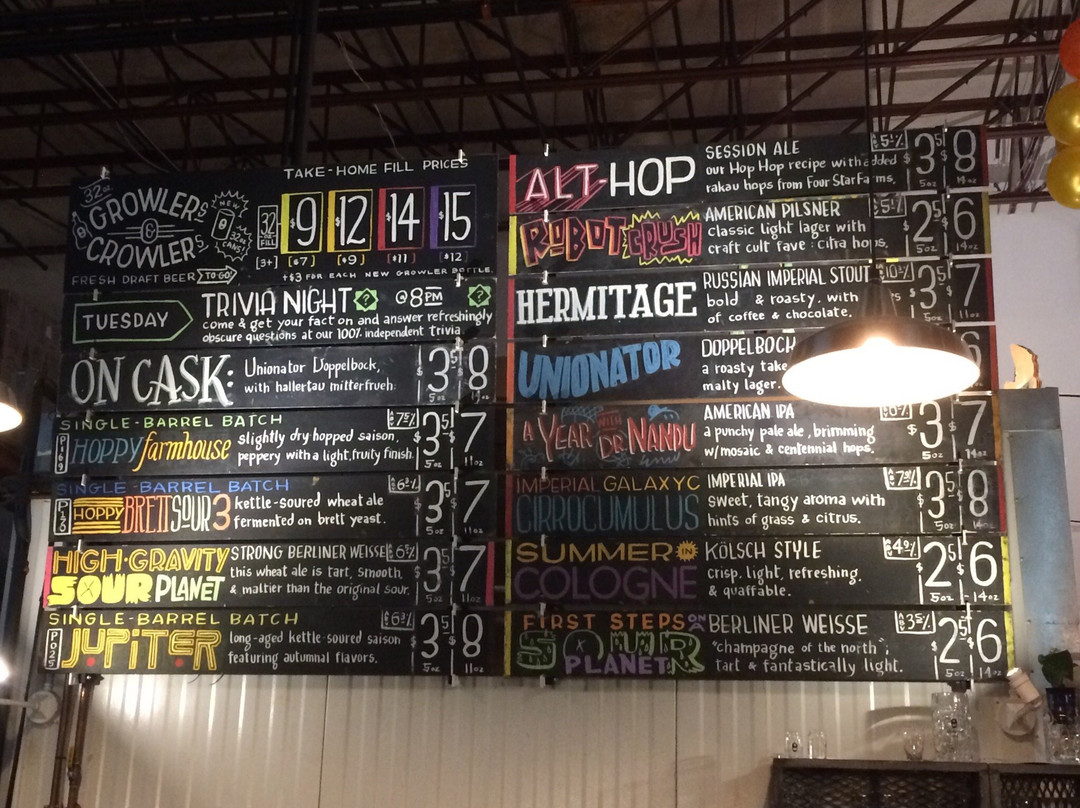 TAKE-HOME FILL PRICES
32oz
GROWLERS
&
CROWLERS
NEW
32oz CANS!
FRESH DRAFT BEER TO-GO
32 oz FILL $9 $12 $14 $15
[3+] [$7] [$9] [$11] [$12]
+$3 FOR EACH NEW GROWLER BOTTLE
TUESDAY
TRIVIA NIGHT ? @8PM ?
come & get your fact on and answer refreshingly
obscure questions at our 100% independent trivia.
ON CASK:
Unionator Doppelbock,
with hallertau mitterfrueh.
$3.5 $8
SINGLE-BARREL BATCH
HOPPY farmhouse
slightly dry-hopped saison,
peppery with a light, fruity finish.
$3.5 5oz $7 11oz
SINGLE-BARREL BATCH
HOPPY BRETT SOUR 3
kettle-soured wheat ale
fermented on brett yeast.
$3.5 5oz $7 11oz
HIGH-GRAVITY
SOUR PLANET
STRONG BERLINER WEISSE
this wheat ale is tart, smooth,
& maltier than the original sour.
$3.5 5oz $7 11oz
SINGLE-BARREL BATCH
JUPITER
long-aged kettle-soured saison
featuring autumnal flavors.
$3.5 5oz $8 11oz
ALT-HOP
SESSION ALE
our Hop Hop recipe with added
rakau hops from Four Star Farms.
$3.5 5oz $8 14oz
ROBOT CRUSH
AMERICAN PILSNER
classic light lager with
craft cult fave: citra hops.
$2.5 5oz $6 14oz
HERMITAGE
RUSSIAN IMPERIAL STOUT
bold & roasty, with
of coffee & chocolate.
$3.5 5oz $7 11oz
UNIONATOR
DOPPELBOCK
a roasty take
malty lager.
A YEAR WITH DR. NANDU
AMERICAN IPA
a punchy pale ale, brimming
w/mosaic & centennial hops.
$3 5oz $7 14oz
IMPERIAL GALAXYC
CIRROCUMULUS
IMPERIAL IPA
sweet, tangy aroma with
hints of grass & citrus.
$3.5 5oz $8
SUMMER IN
COLOGNE
KÖLSCH STYLE
crisp, light, refreshing.
& quaffable.
$2.5 5oz $6 14oz
FIRST STEPS ON A
SOUR
PLANET
BERLINER WEISSE
"champagne of the north";
tart & fantastically light.
$2.5 5oz $6 14oz